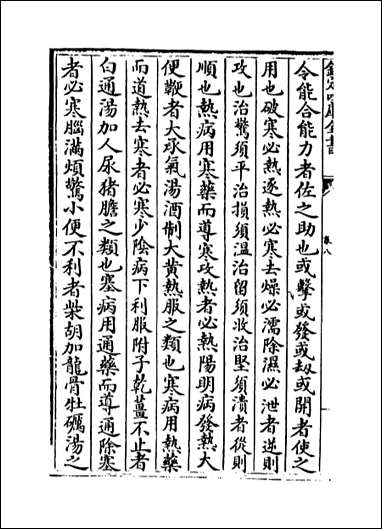 欽定四庫全書
卷八
令能合能力者佐之助也或擊或發或刼或開者使之
用也破寒必熱逐熱必寒去燥必濡除濕必泄者逆則
攻也治驚須平治損須溫治留須收治堅須潰者從則
順也熱病用寒藥而導寒攻熱者必熱陽明病發熱大
便鞭者大承氣湯酒制大黃熱服之類也寒病用熱藥
而道熱去寒者必寒少陰病下利服附子乾薑不止者
白通湯加人尿猪膽之類也塞病用通藥而導通除塞
者必寒腦滿煩驚小便不利者柴胡加龍骨牡礪湯之